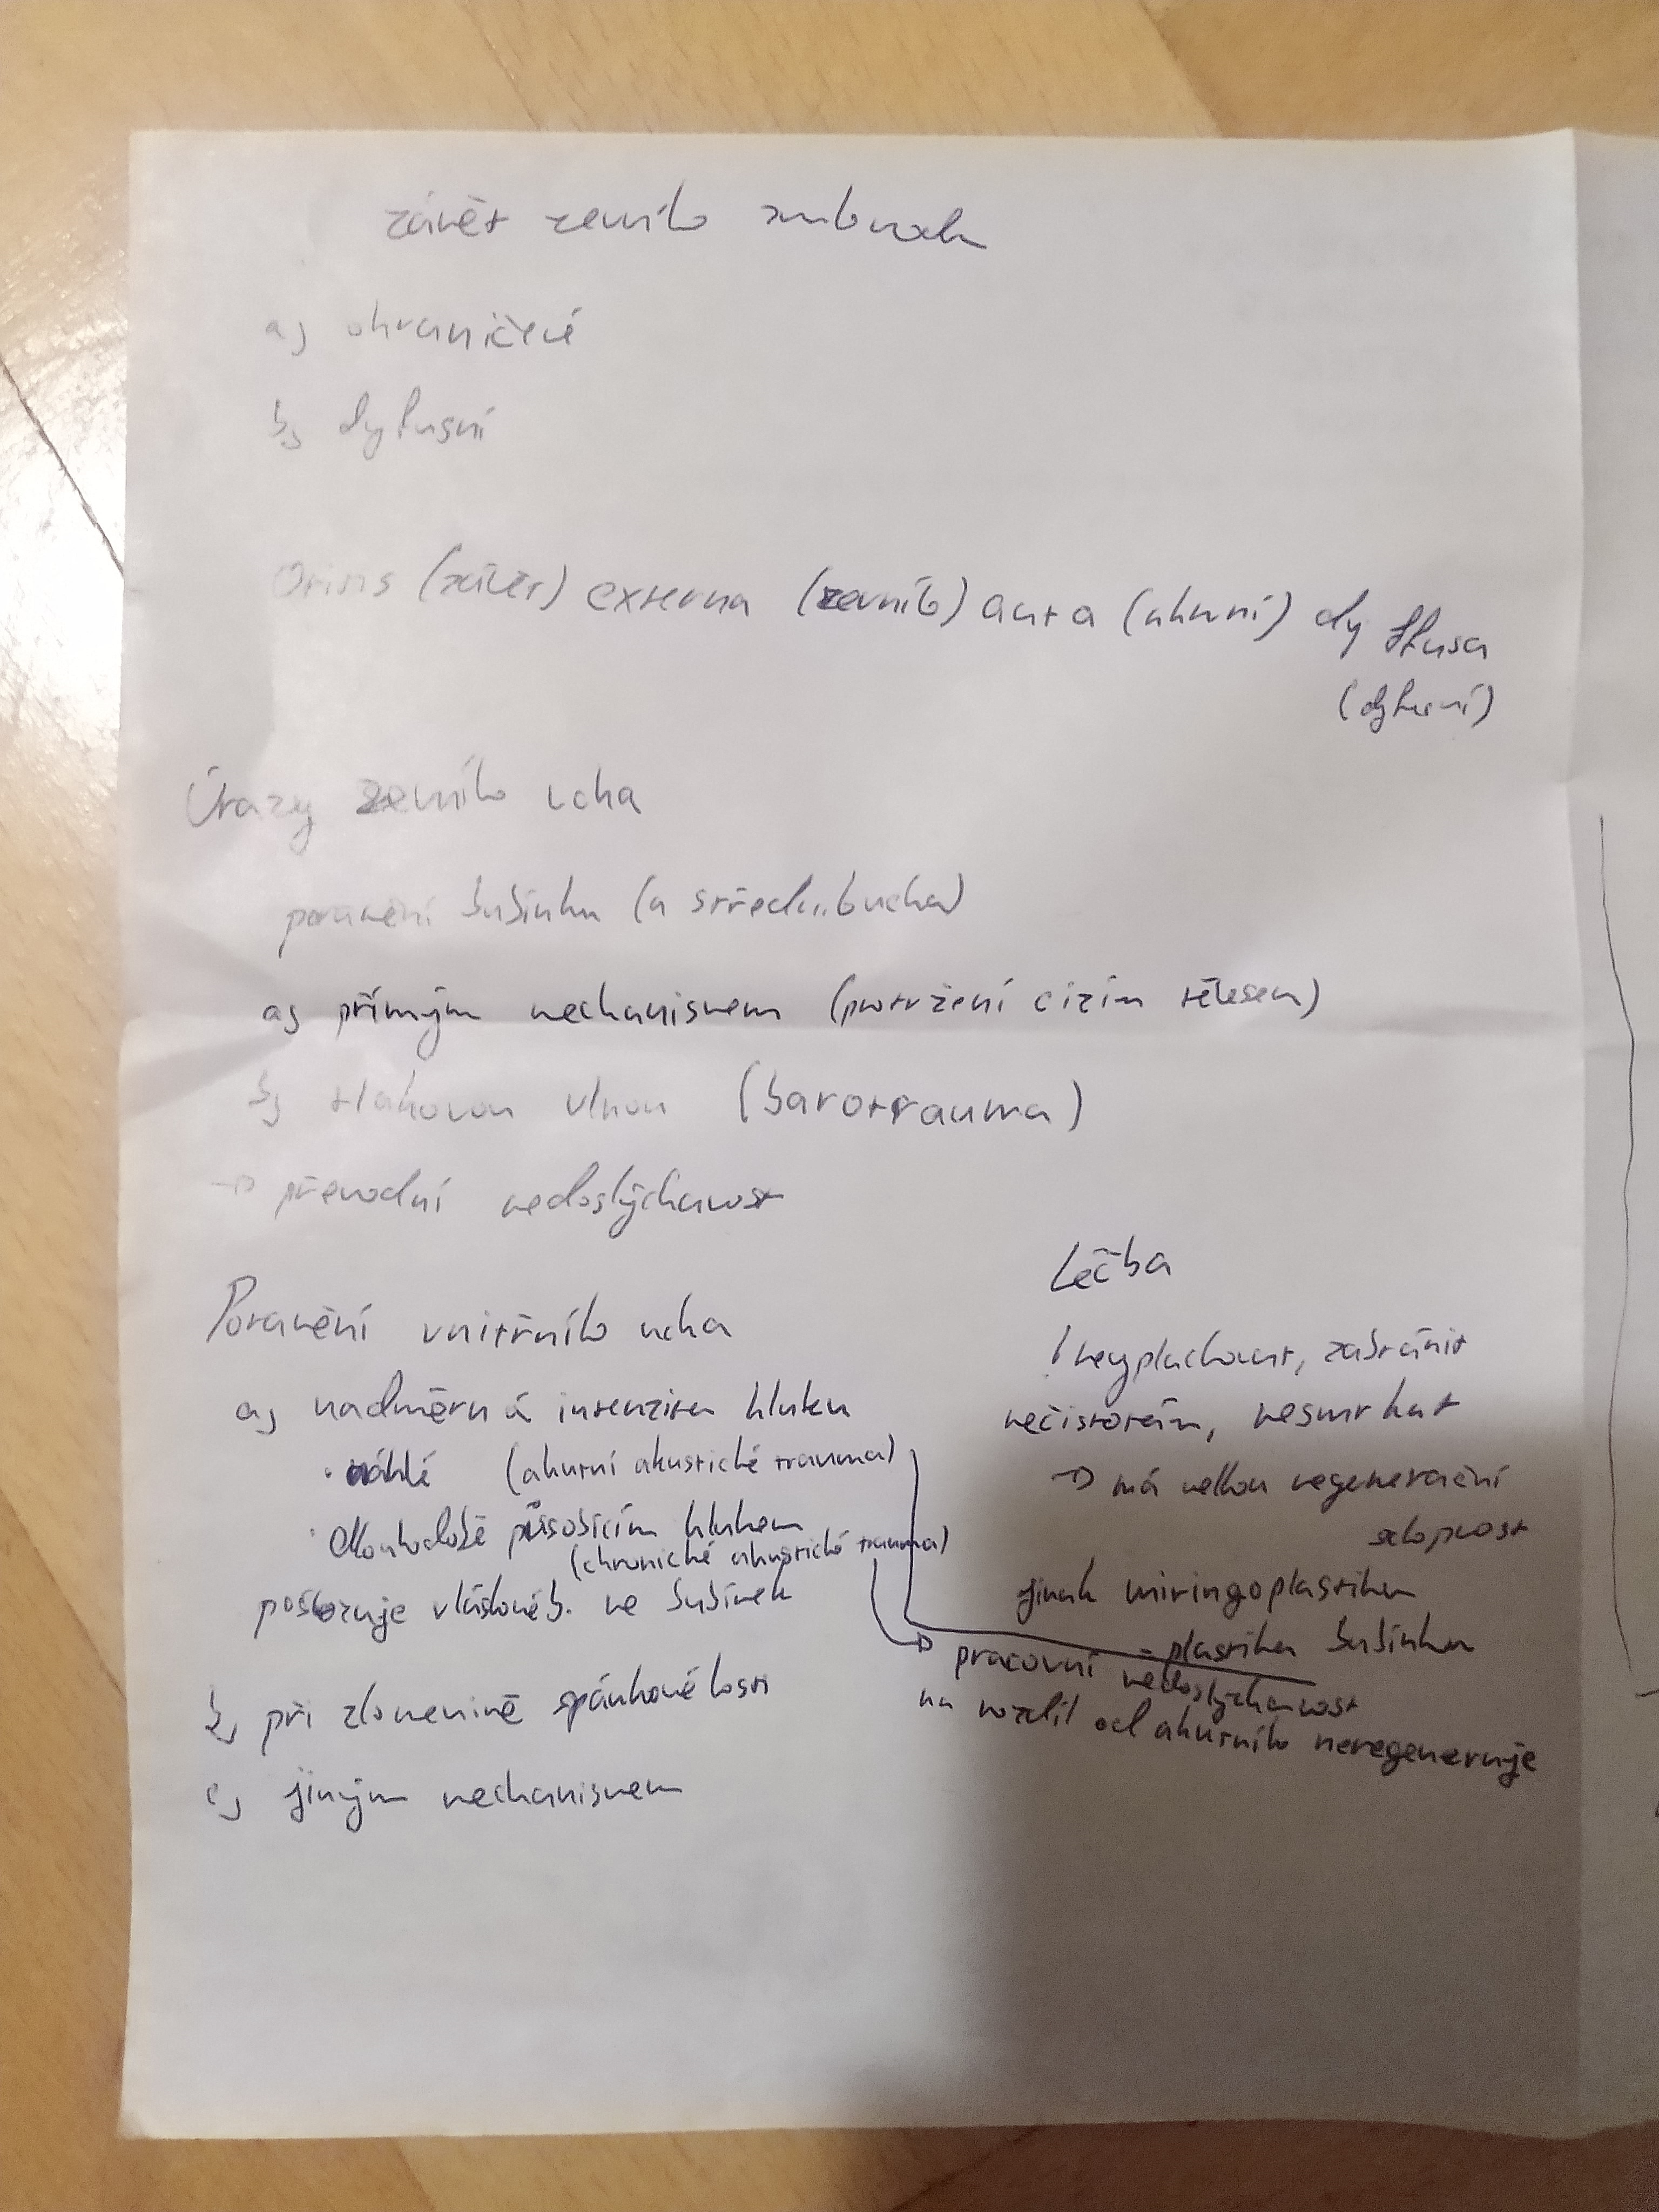 zánět zevního zvukovodu
a) ohraničené
b) dyfusní
Otitis (zánět) externa (zevního) acuta (akutní) dy ffusa
(dyfusní)
Úrazy zevního ucha
poranění bubínku (a středou. ucha)
a) přímým mechanismem (protržení cizím tělesem)
b) tlakovou vlnou (barotrauma)
→ převodní nedoslýchavost
Poranění vnitřního ucha
a) nadměrná intenzita hluku
· náhlé (akutní akustické trauma)
· dlouhodobě působícím hlukem
(chronické akustické trauma)
poškozuje vláskové b. ve bubínek
b) při zlomenině spánkové kosti
c) jiným mechanismem
Léčba
! nevyplachovat, zabránit
nečistotám, nesmrkat
→ má velkou regenerační
schopnost
jinak miringoplastika
- plastika bubínku
→ pracovní nedoslýchavost
na rozdíl od akutního neregeneruje